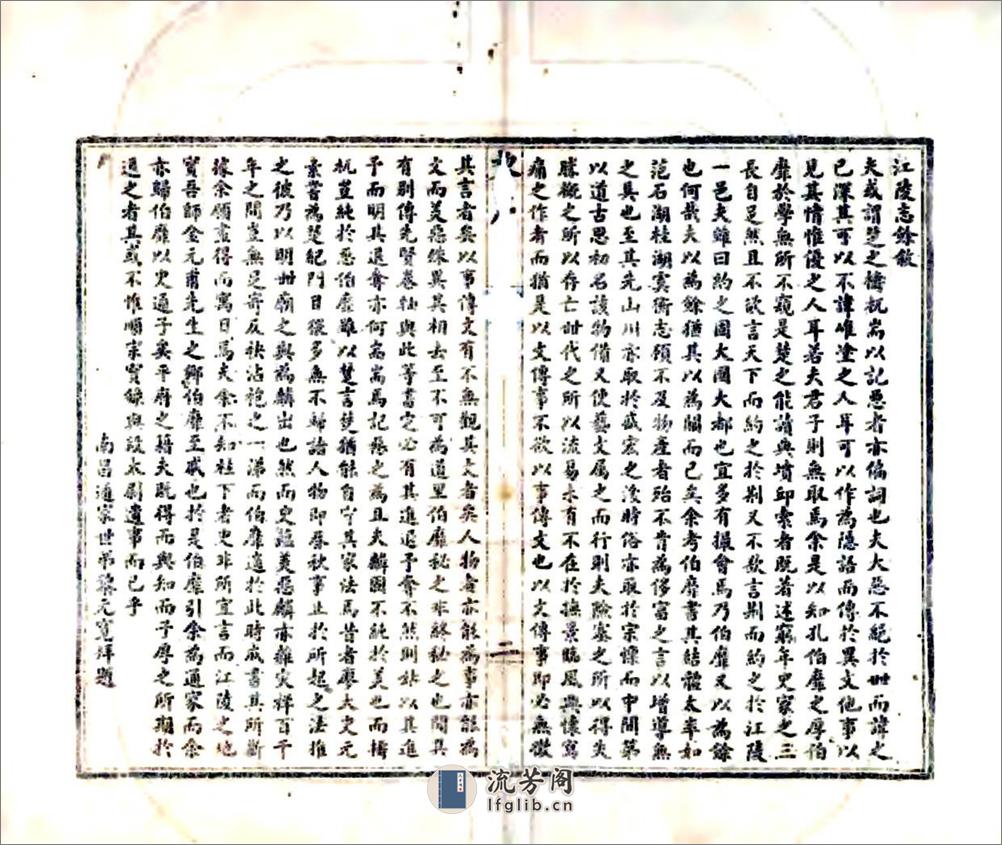 江陵志餘敘
夫或謂楚之檮杌耑以記惡者亦偏詞也夫大惡不絕於世而諱之
已深其可以不諱唯塗之人耳可以作為隱語而傳於異文他事以
見其情惟優之人耳若夫君子則無取焉余是以知孔伯靡之厚伯
靡於學無所不窺是楚之能讀典墳邱索者既著述窮年史家之三
長自足然且不欲言天下而約之於荆又不欲言荆而約之於江陵
一邑夫雖曰約之國大國大都也宜多有撮會焉乃伯靡又以為餘
也何哉夫以為餘猶其以為闕而已矣余考伯靡書其結體太率如
范石湖桂湖虞衡志領不及物產者殆不肯為侈富之言以增導無
之具也至其先山川亦取於盛宏之後時俗亦取於宗懍而中間第
以道古思初名該物備又使藝文属之而行則夫險塞之所以得失
勝概之所以存亡世代之所以流易未有不在於撫景臨風興懷寫
痛之作者而猶是以文傳事不欲以事傳文也以文傳事即必無徵
其言者矣以事傳文有不無觀其文者矣人物者亦能為事亦能為
文而美惡殊異其相去至不可為道里伯靡秘之非終秘之也間其
有別傳先賢卷軸與此等書定必有其進退予奪不然則姑以其進
予而明其退奪亦何耑耑焉記惡之為且夫麟圖不純於美也而檮
杌豈純於惡伯靡雖以楚言楚猶能自守其家法焉昔者廖大史元
素嘗為楚紀門目猥多無不歸諸人物即春秋事止於所起之法推
之彼乃以明世廟之興為麟出也然而史範美惡顧亦離灾祥百千
年之間豈無足寄反袂沾袍之一涕而伯靡適於此時成書其所斷
據余願盡得而寓目焉夫余不知柱下者史非所宜言而江陵之地
實吾師金元甫先生之鄉伯靡至戚也於是伯靡引余為通家而余
亦歸伯靡以史通子矣平府之籍夫既得而與知而子厚之所期於
退之者其或不惟順宗實錄與段太尉遺事而已乎
南昌通家世弟黎元寬拜題
二
流芳阁
lfglib.cn